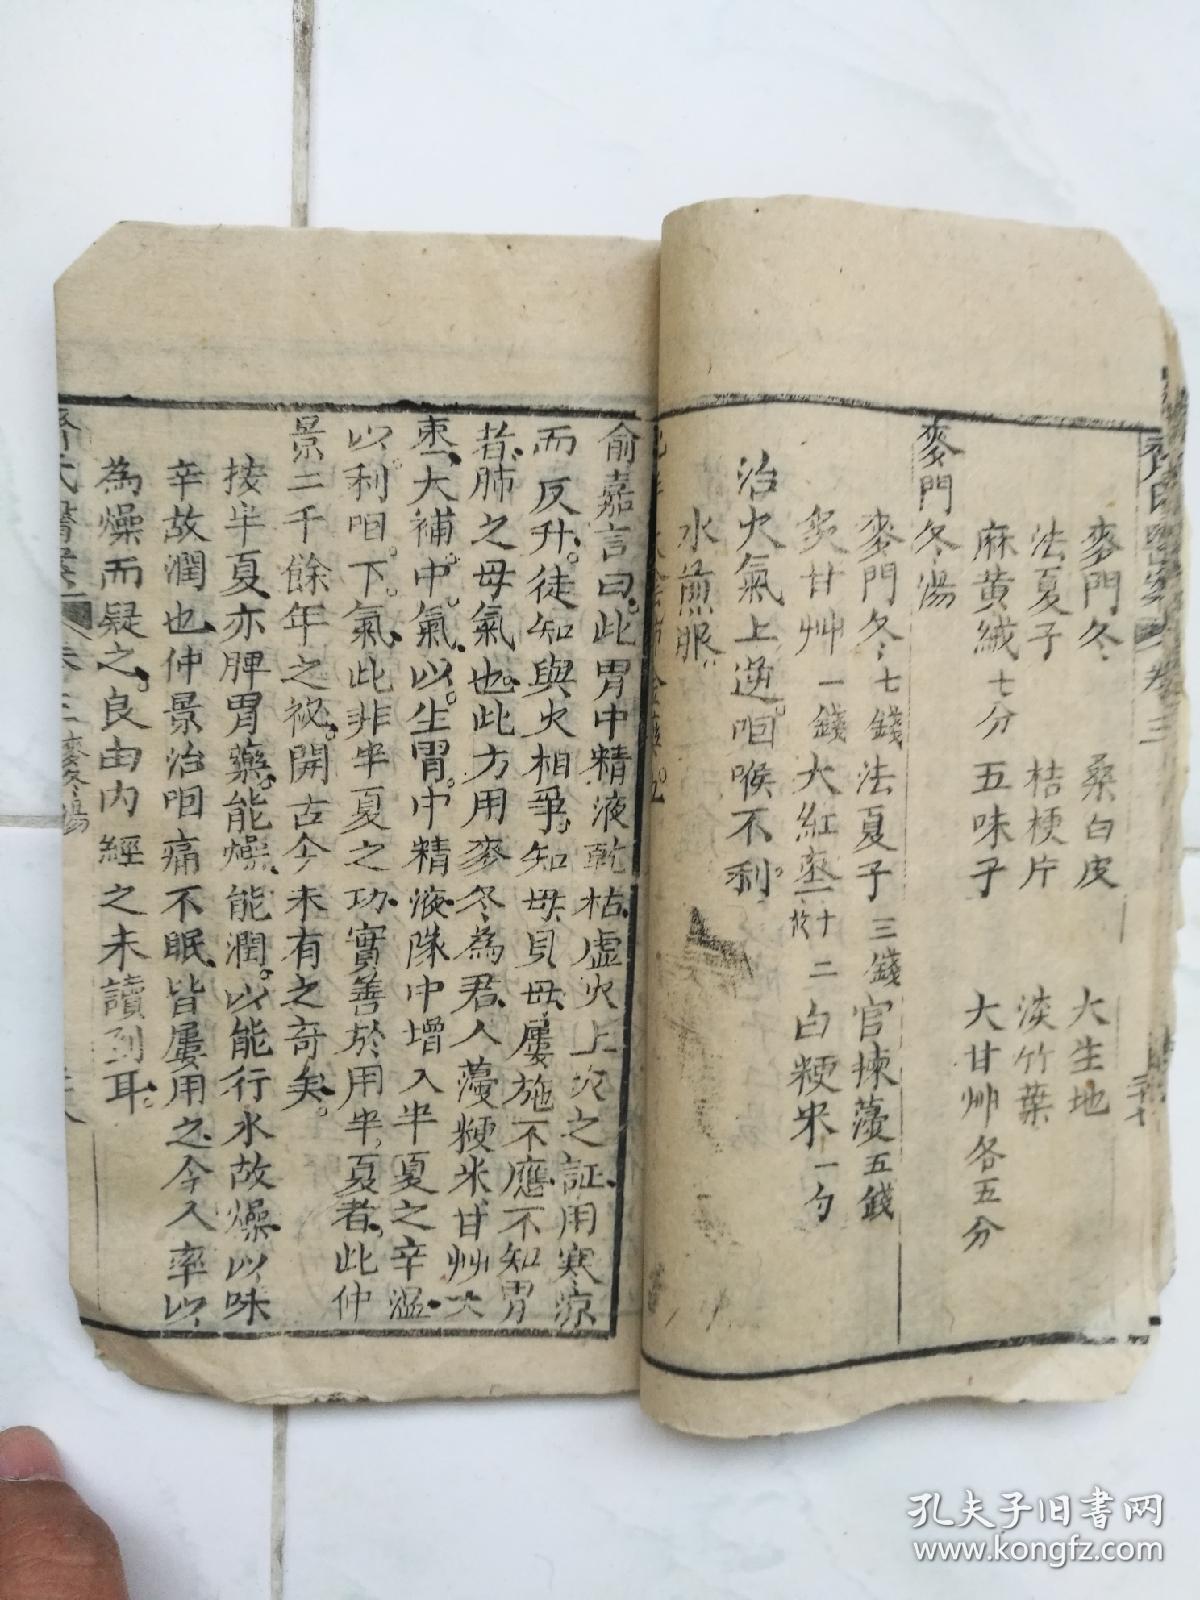 齊氏醫案 卷三
麥門冬 桑白皮 大生地
法夏子 桔梗片 淡竹葉
麻黄絨七分 五味子 大甘艸各五分
麥門冬湯
麥門冬七錢 法夏子三錢 官揀薓五錢
炙甘艸一錢 大紅棗十二枚 白粳米一勺
治火氣上逆。咽喉不利。
水煎服
俞嘉言曰。此胃中精液乾枯。虛火上炎之証。用寒凉
而反升。徒知與火相爭。知母貝母。屢施不應。不知胃
者。肺之母氣也。此方用麥冬為君。人薓粳米。甘艸大
棗。大補中氣。以生胃中精液。隊中增入半夏之辛溫。
以利咽下氣。此非半夏之功。實善於用半夏者。此仲
景二千餘年之祕。開古今未有之奇矣。
按半夏亦脾胃藥。能燥能潤。以能行水故燥。以味
辛故潤也。仲景治咽痛不眠。皆屢用之。今人率以
為燥而疑之。良由内經之未讀到耳。
齊氏醫案 卷三 麥冬湯